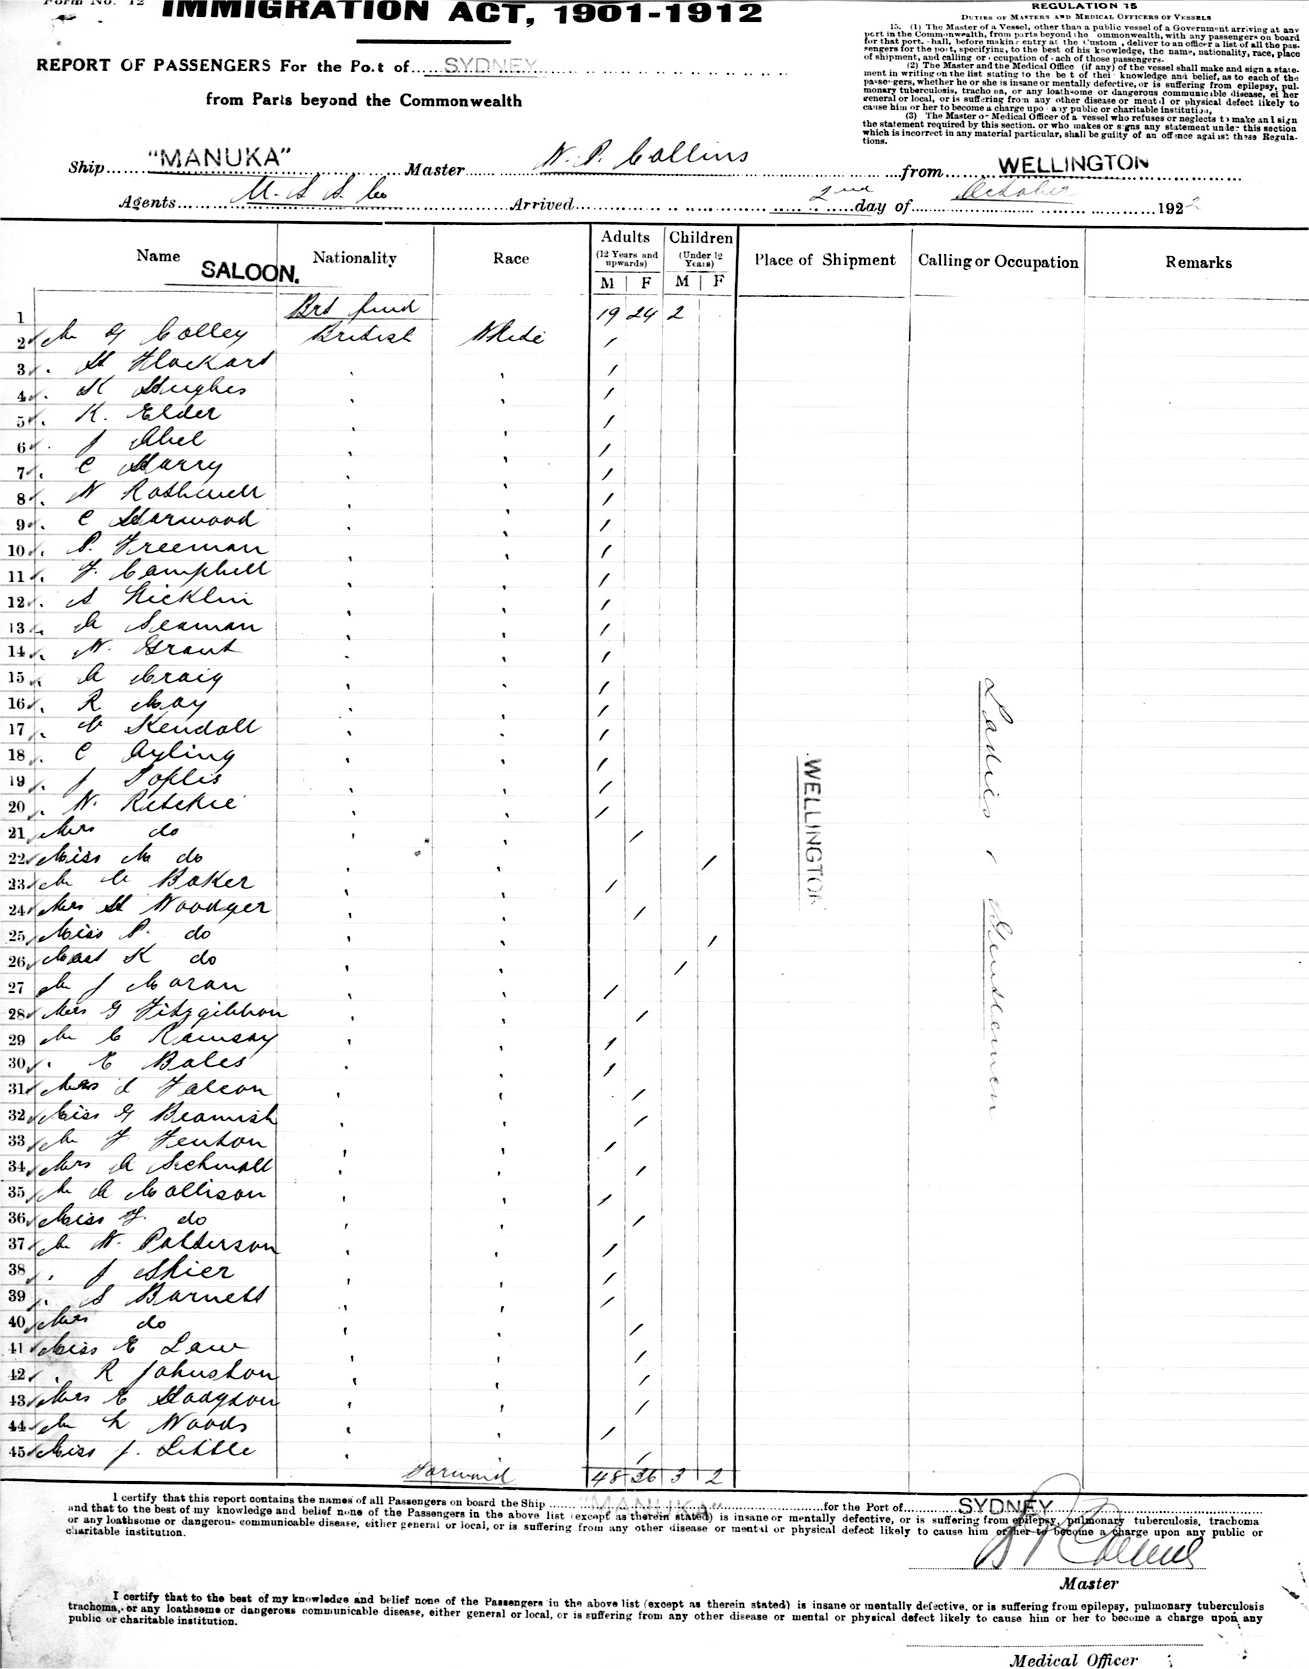 Form No. 12
IMMIGRATION ACT, 1901-1912
REPORT OF PASSENGERS For the Po.t of SYDNEY
from Parts beyond the Commonwealth
REGULATION 15
DUTIES OF MASTERS AND MEDICAL OFFICERS OF VESSELS
15. (1) The Master of a Vessel, other than a public vessel of a Government arriving at any
port in the Commonwealth, from parts beyond the ommonwealth, with any passengers on board
for that port, hall, before making entry at the Custom, deliver to an officer a list of all the pas-
sengers for the port, specifying, to the best of his knowledge, the name, nationality, race, place
of shipment, and calling or occupation of each of those passengers.
(2) The Master and the Medical Office (if any) of the vessel shall make and sign a state-
ment in writing on the list stating to the be t of thei knowledge and belief, as to each of the
passengers, whether he or she is insane or mentally defective, or is suffering from epilepsy, pul-
monary tuberculosis, tracho a, or any loathsome or dangerous communicable disease, ei her
general or local, or is suffering from any other disease or mental or physical defect likely to
cause him or her to become a charge upon any public or charitable institution.
(3) The Master or Medical Officer of a vessel who refuses or neglects to make and sign
the statement required by this section, or who makes or signs any statement under this section
which is incorrect in any material particular, shall be guilty of an offence against these Regula-
tions.
Ship "MANUKA" Master W. P. Collins from WELLINGTON
Agents U. S. S. Co Arrived 2nd day of October 1922
Name SALOON. Nationality Race Adults (12 Years and upwards) M F Children (Under 12 Years) M F Place of Shipment Calling or Occupation Remarks
1 Brt fwd 19 24 2
2 Mr G Colley British White /
3 . H Flockart ' ' /
4 . K Hughes ' ' /
5 . K. Elder ' ' /
6 . J Abel ' ' /
7 . C Harry ' ' /
8 . W Rothwell ' ' /
9 . C Harwood ' ' /
10 . P. Freeman ' ' /
11 . F. Campbell ' ' /
12 . S Nicklin ' ' /
13 . A Seaman ' ' /
14 . W. Grant ' ' /
15 . A Craig ' ' /
16 . R May ' ' /
17 . Kendall ' ' /
18 . C Ayling ' ' /
19 . J Poplis ' ' /
20 . W. Ritchie ' ' /
21 Mrs do ' ' /
22 Miss M do ' ' /
23 Mr Baker ' ' /
24 Mrs H Woodger ' ' /
25 Miss P. do ' ' /
26 Mast K do ' ' /
27 Mr J Moran ' ' /
28 Mrs G Fitzgibbon ' ' /
29 Mr C Ramsay ' ' /
30 . E Bales ' ' /
31 Mrs L Falcon ' ' /
32 Miss G Beamish ' ' /
33 Mr F Fenton ' ' /
34 Mrs A Sechwall ' ' /
35 Mr A Mollison ' ' /
36 Miss F. do ' ' /
37 Mr W. Patterson ' ' /
38 . J Shier ' ' /
39 . S Barnett ' ' /
40 Mrs do ' ' /
41 Miss E Law ' ' /
42 . R Johnston ' ' /
43 Mrs E Hodgson ' ' /
44 Mr L Woods ' ' /
45 Miss J. Little ' /
WELLINGTON
Ladies & Gentlemen
Forward 48 36 3 2
I certify that this report contains the names of all Passengers on board the Ship "MANUKA" for the Port of SYDNEY
and that to the best of my knowledge and belief none of the Passengers in the above list (except as therein stated) is insane or mentally defective, or is suffering from epilepsy, pulmonary tuberculosis, trachoma
or any loathsome or dangerous communicable disease, either general or local, or is suffering from any other disease or mental or physical defect likely to cause him or her to become a charge upon any public or
charitable institution.
W P Collins
Master
I certify that to the best of my knowledge and belief none of the Passengers in the above list (except as therein stated) is insane or mentally defective, or is suffering from epilepsy, pulmonary tuberculosis
trachoma, or any loathsome or dangerous communicable disease, either general or local, or is suffering from any other disease or mental or physical defect likely to cause him or her to become a charge upon any
public or charitable institution.
Medical Officer